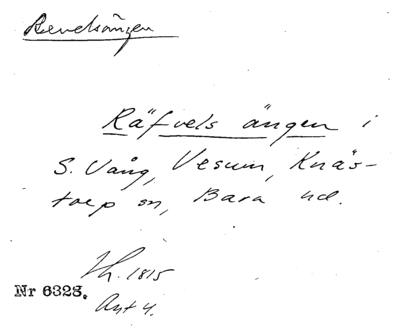 Revelsängen
Räfvels ängen i
S. Vång, Vesum, Knäs-
torp sn, Bara hd.
Th. 1815
Nr 6328.
Akt 4.